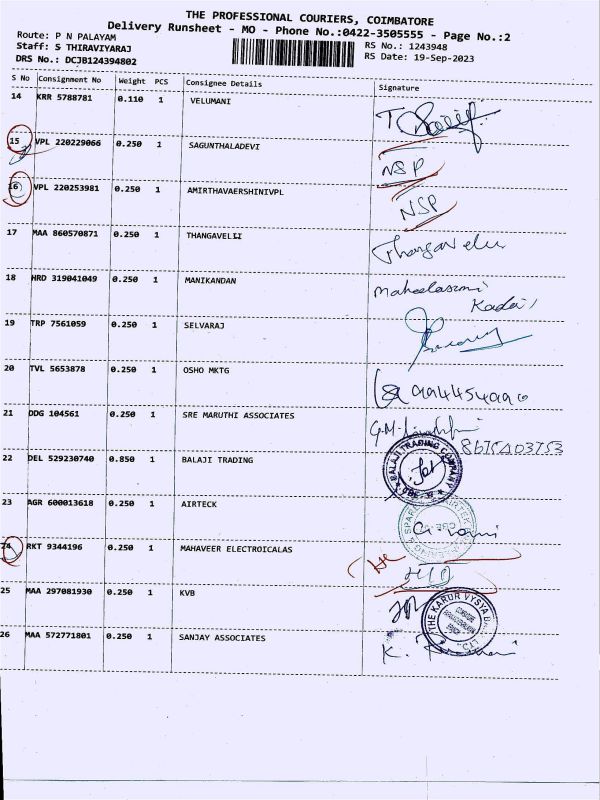 THE PROFESSIONAL COURIERS, COIMBATORE
Delivery Runsheet - MO - Phone No.:0422-3505555 - Page No.:2
Route: P N PALAYAM
Staff: S THIRAVIYARAJ
DRS No.: DCJB124394802
RS No.: 1243948
RS Date: 19-Sep-2023
S No Consignment No Weight PCS Consignee Details Signature
14 KRR 5788781 0.110 1 VELUMANI
15 VPL 220229066 0.250 1 SAGUNTHALADEVI NSP
16 VPL 220253981 0.250 1 AMIRTHAVAERSHINIVPL NSP
17 MAA 860570871 0.250 1 THANGAVELII Thangavelu
18 HRD 319041049 0.250 1 MANIKANDAN
19 TRP 7561059 0.250 1 SELVARAJ
20 TVL 5653878 0.250 1 OSHO MKTG
21 DDG 104561 0.250 1 SRE MARUTHI ASSOCIATES
22 DEL 529230740 0.850 1 BALAJI TRADING BALAJI TRADING COMPANY
23 AGR 600013618 0.250 1 AIRTECK
24 RKT 9344196 0.250 1 MAHAVEER ELECTROICALAS
25 MAA 297081930 0.250 1 KVB THE KARUR VYSYA BANK LTD.
26 MAA 572771801 0.250 1 SANJAY ASSOCIATES